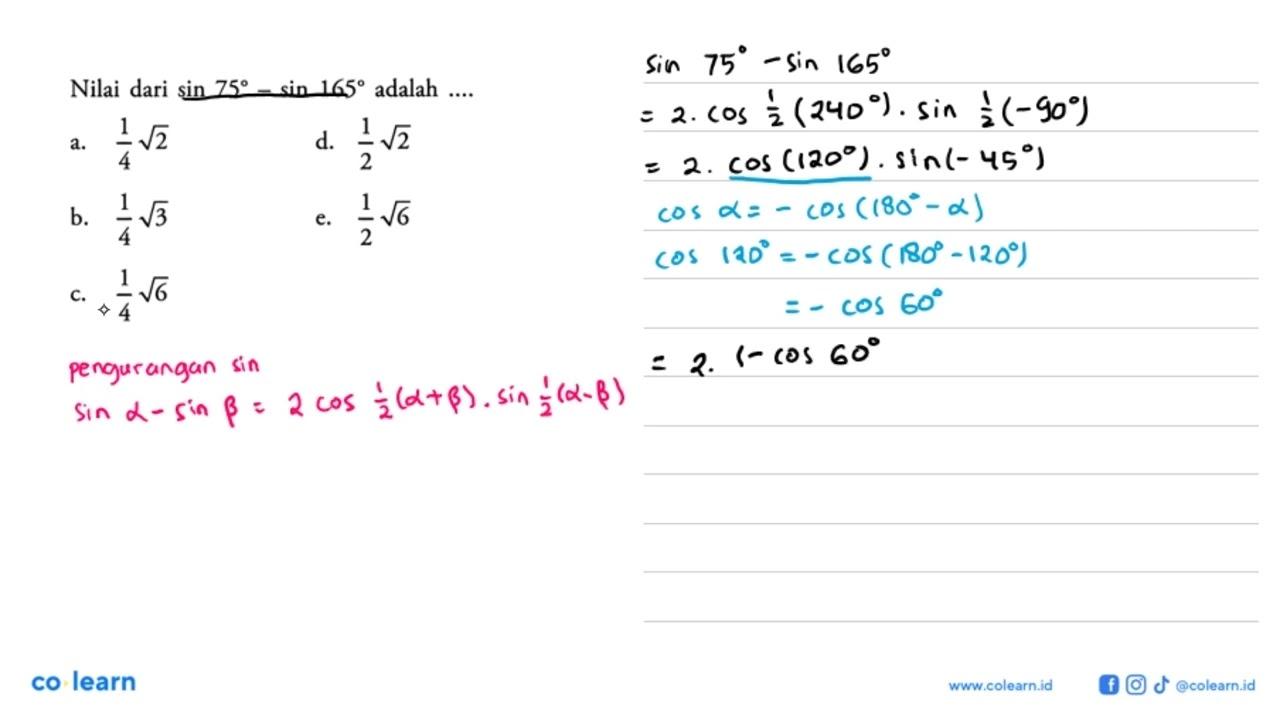 Nilai dari sin 75° – sin 165° adalah ....
a. 1/4 √2
b. 1/4 √3
c. 1/4 √6
d. 1/2 √2
e. 1/2 √6
pengurangan sin
sin α - sin β = 2 cos 1/2 (α+β) . sin 1/2 (α-β)
sin 75° - sin 165°
= 2. cos 1/2 (240°) . sin 1/2 (-90°)
= 2. cos (120°) . sin (- 45°)
cos α = - cos (180° - α)
cos 120° = - cos (180° - 120°)
= - cos 60°
= 2. (- cos 60°
co learn
www.colearn.id
@colearn.id